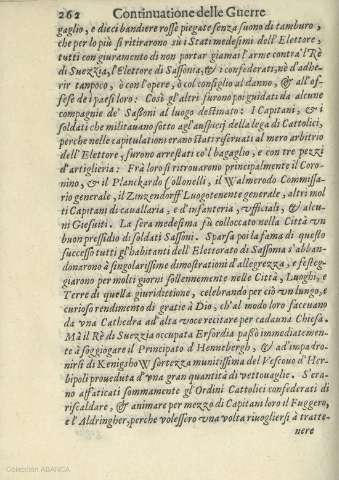 262 Continuatione delle Guerre
gaglio, e dieci bandiere rosse piegate senza suono di tamburo,
che per lo più si ritirarono sù i Stati medesimi dell' Elettore,
tutti con giuramento di non portar giamai l'arme contra'l Rè
di Suezzia, l'Elettore di Sassonia, & i confederati, nè d'adhe-
rir tampoco, ò con l'opere, ò col consiglio al danno, & all'of-
fese de i paesi loro: Così gl'altri furono poi guidati da alcune
compagnie de' Sassoni al luogo destinato: I Capitani, & i
soldati che militauano sotto agl'auspicij della lega di Cattolici,
perche nelle capitulationi erano stati riseruati al mero arbitrio
dell' Elettore, furono arrestati co'l bagaglio, e con tre pezzi
d'artiglieria: Frà loro si ritrouarono principalmente il Coro-
nino, & il Planckardo Collonelli, il Walmerodo Commissa-
rio generale, il Zinzendorff Luogotenente generale, altri mol
ti Capitani di cauallaria, e d'infanteria, vfficiali, & alcu-
ni Giesuiti. La sera medesima fù colloccato nella Città vn
buon pressidio di soldati Sassoni. Sparsa poi la fama di questo
successo tutti gl'habitanti dell' Elettorato di Sassonia s'abban-
donarono à singolarissime dimostrationi d'allegrezza, e festeg-
giarono per molti giorni sollennemente nelle Città, Luoghi, e
Terre di quella giuriditione, celebrando per ciò vn lungo, e
curioso rendimento di gratie à Dio, ch'al modo loro faceuano
da vna Cathedra ad alta voce recitare per cadauna Chiesa.
Mà il Rè di Suezzia occupata Erfordia passò immediatemen-
te à soggiogare il Principato d'Hennebergh, & ad impadro-
nirsi di Kenigshow fortezza munitissima del Vescouo d'Her-
bipoli proueduta d'vna gran quantità di vettouaglie. S'era-
no affaticati sommamente gl'Ordini Cattolici confederati di
riscaldare, & animare per mezzo di Capitani loro il Fuggero,
e l'Aldringher, perche volessero vna volta riuogliersi à tratte-
nere
Colección ABANCA